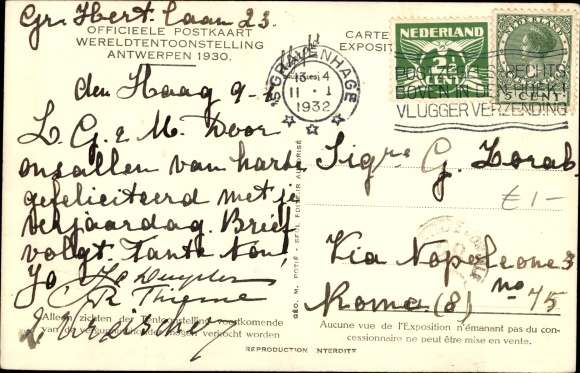 Gr. Hert. laan 23.
OFFICIEELE POSTKAART
WERELDTENTOONSTELLING
ANTWERPEN 1930.
CARTE
EXPOSI
den Haag 9-
L. G. & M. Door
ons allen van harte
gefeliciteerd met je
verjaardag. Brief
volgt. Tante Ton!
Jo
Thieme
'S-GRAVENHAGE
13 4
11 1
1932
NEDERLAND
2½
CENT
POSTZEGELS RECHTS
BOVEN IN DEN HOEK!
VLUGGER VERZENDING
Sigre G. Zorab.
£ 1-
Via Napoleone 3
no 75
Roma (8)
GÉO. M. POTIÉ - SEUL EDITEUR AUTORISÉ
Alleen zichten der Tentoonstelling voortkomende
van de vergunninghouder mogen verkocht worden
Aucune vue de l'Exposition n'émanant pas du con-
cessionnaire ne peut être mise en vente.
REPRODUCTION INTERDITE